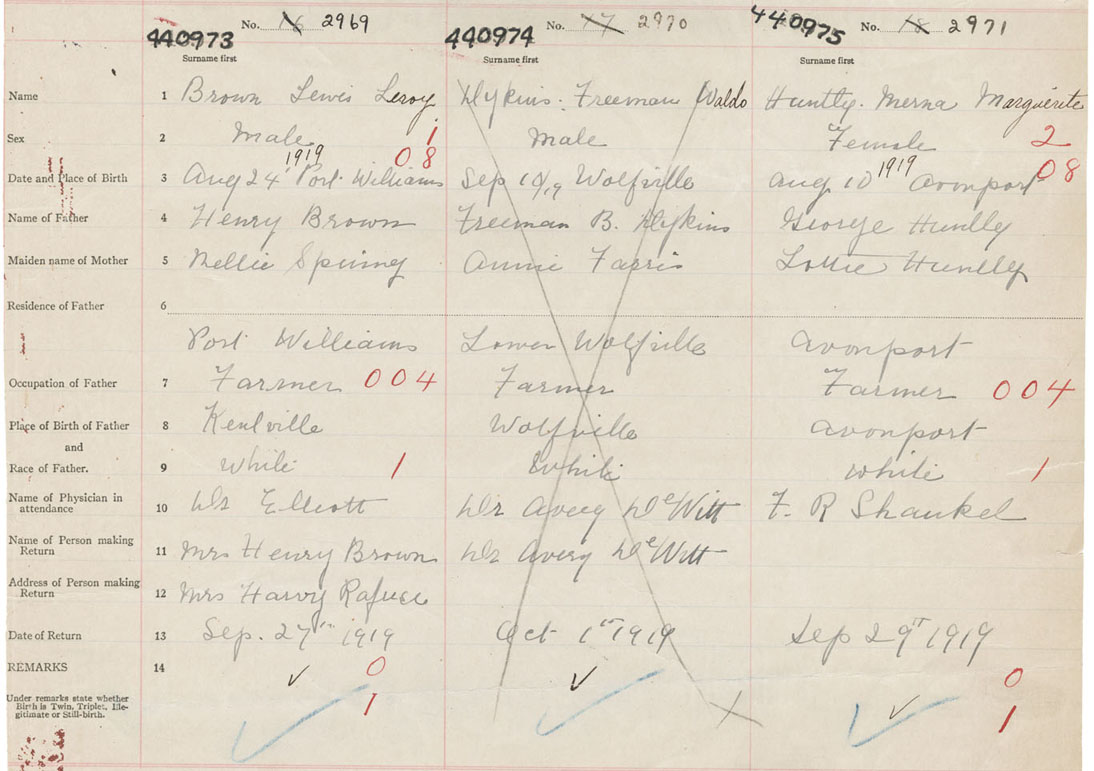 No. 16 2969 No. 17 2970 No. 18 2971
440973 440974 440975
Surname first Surname first Surname first
Name 1 Brown Lewis Leroy Dykins. Freeman Waldo Huntly. Merna Marguerite
Sex 2 Male 1 Male Female 2
Date and Place of Birth 3 Aug 24 1919 Port Williams 08 Sep 10/19 Wolfville Aug 10 1919 Avonport 08
Name of Father 4 Henry Brown Freeman B. Dykins George Huntly
Maiden name of Mother 5 Nellie Spinney Annie Farris Lottie Huntly
Residence of Father 6
Port Williams Lower Wolfville Avonport
Occupation of Father 7 Farmer 004 Farmer Farmer 004
Place of Birth of Father 8 Kentville Wolfville Avonport
and
Race of Father. 9 White 1 White White 1
Name of Physician in
attendance 10 Dr Elliott Dr Avery DeWitt F. R Shankel
Name of Person making
Return 11 Mrs Henry Brown Dr Avery DeWitt
Address of Person making
Return 12 Mrs Harvy Rafuse
Date of Return 13 Sep. 27th 1919 Oct 1st 1919 Sep 29th 1919
REMARKS 14 0 0
Under remarks state whether
Birth is Twin, Triplet, Ille-
gitimate or Still-birth. 1 1